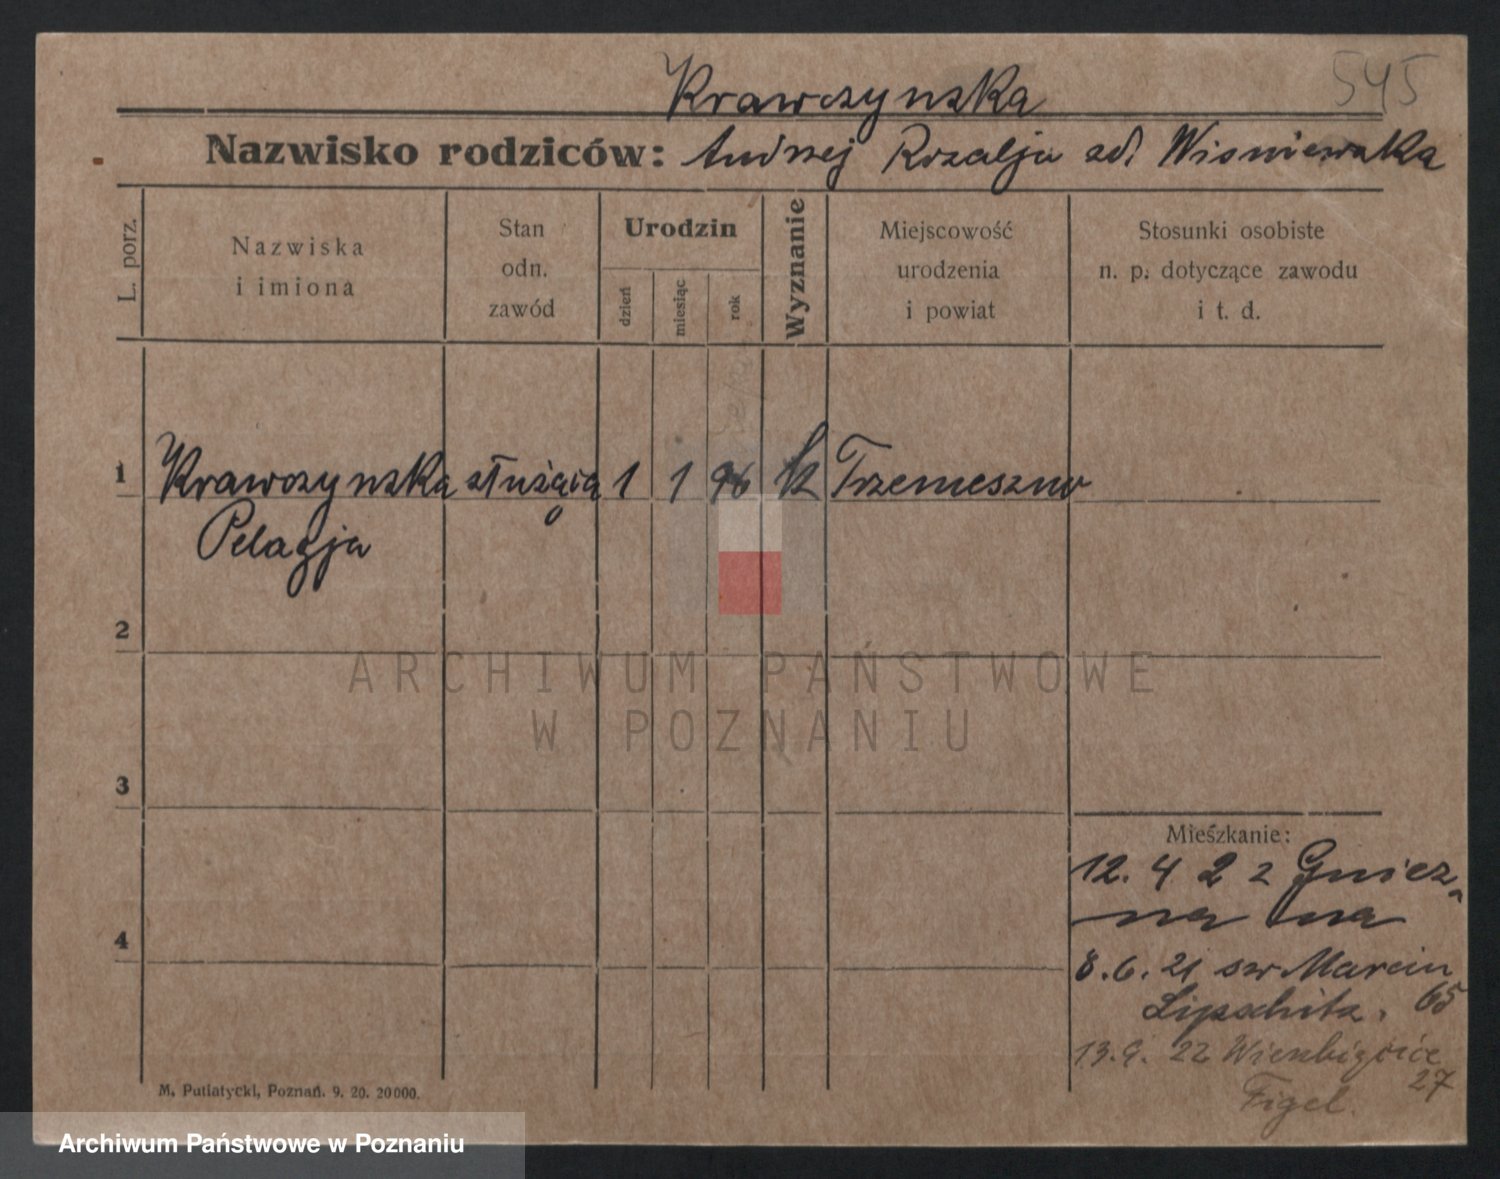 545
Krawczynska
Nazwisko rodziców: Andrzej Rozalja zd. Wisniewska
L. porz.
Nazwiska
i imiona
Stan
odn.
zawód
Urodzin
dzień
miesiąc
rok
Wyznanie
Miejscowość
urodzenia
i powiat
Stosunki osobiste
n. p. dotyczące zawodu
i t. d.
1 Krawczynska służąca 1 1 96 k Trzemeszno
Pelagja
2
ARCHIWUM PAŃSTWOWE
W POZNANIU
3
4
Mieszkanie:
12. 4 2 z Gniez-
na na
8. 6. 21 sw Marcin
Lipschitz. 65
13. 9. 22 Wierzbięcice
27
Figel.
M. Putiatycki, Poznań. 9. 20. 20000.
Archiwum Państwowe w Poznaniu